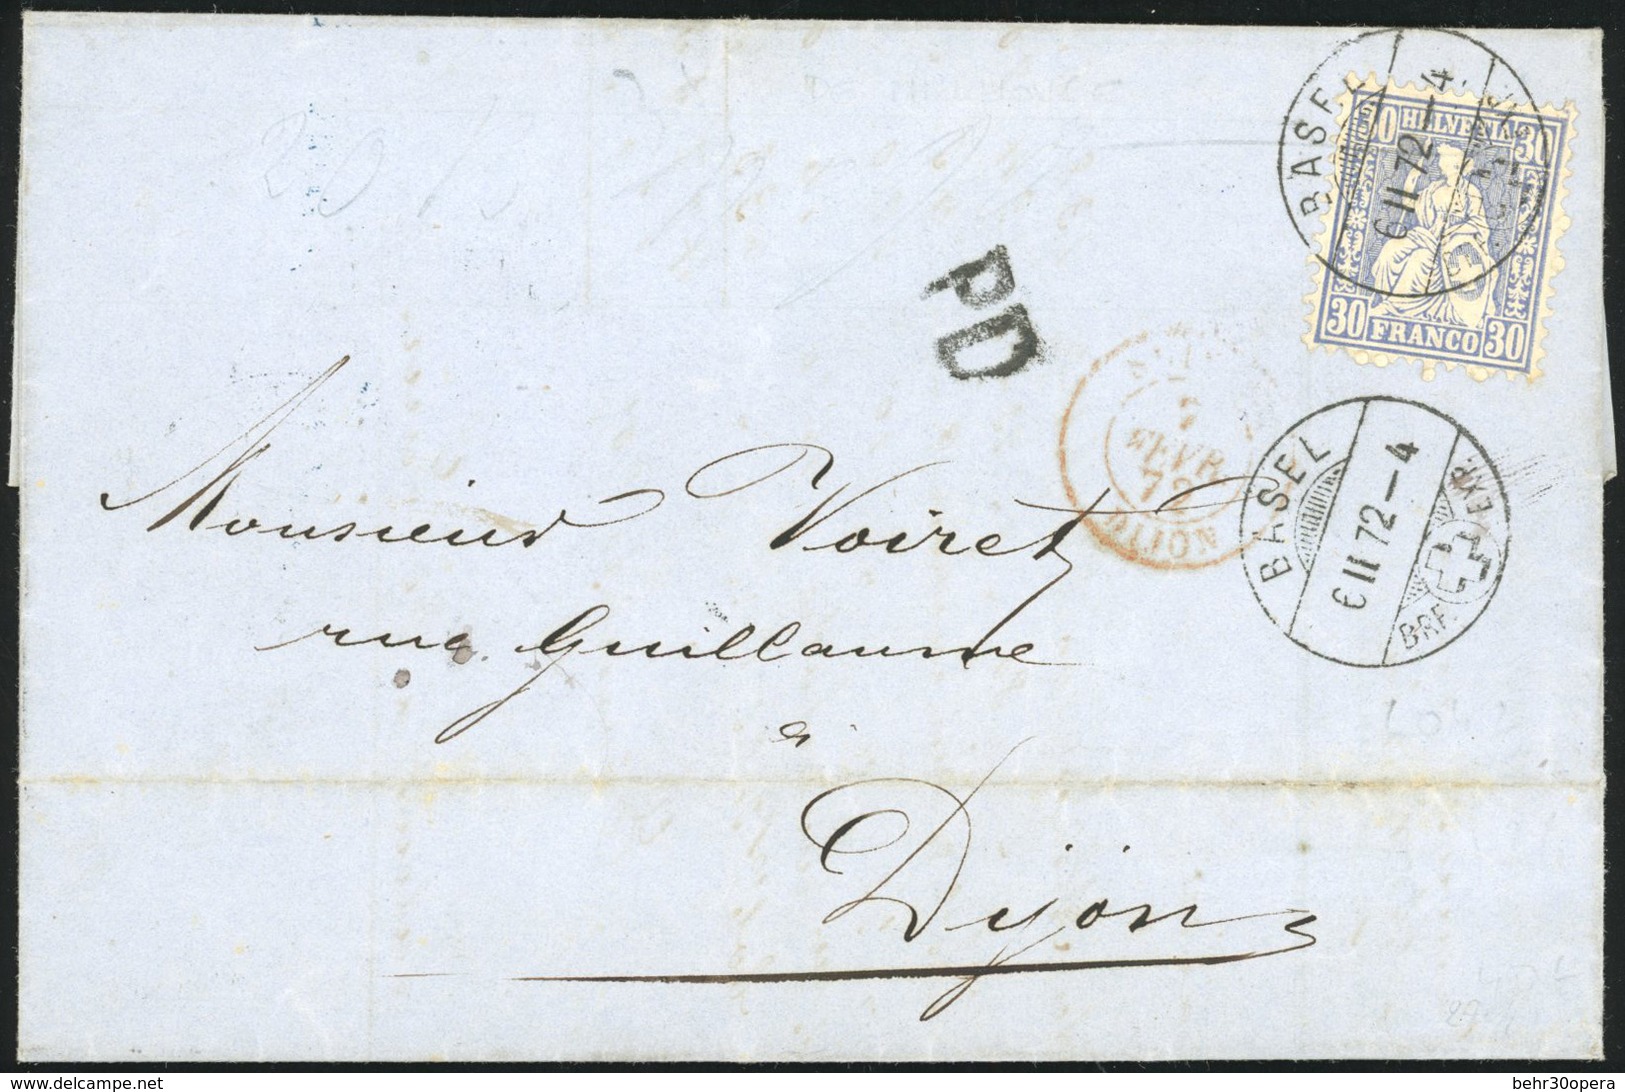 BASEL
6 II 72–4
30 HELVETIA 30
30 FRANCO 30
PD
7
FEVR
72
DIJON
BASEL
6 II 72–4
BRF. EXP.
Monsieur Voiret
rue Guillaume
à
Dijon
behr30opera